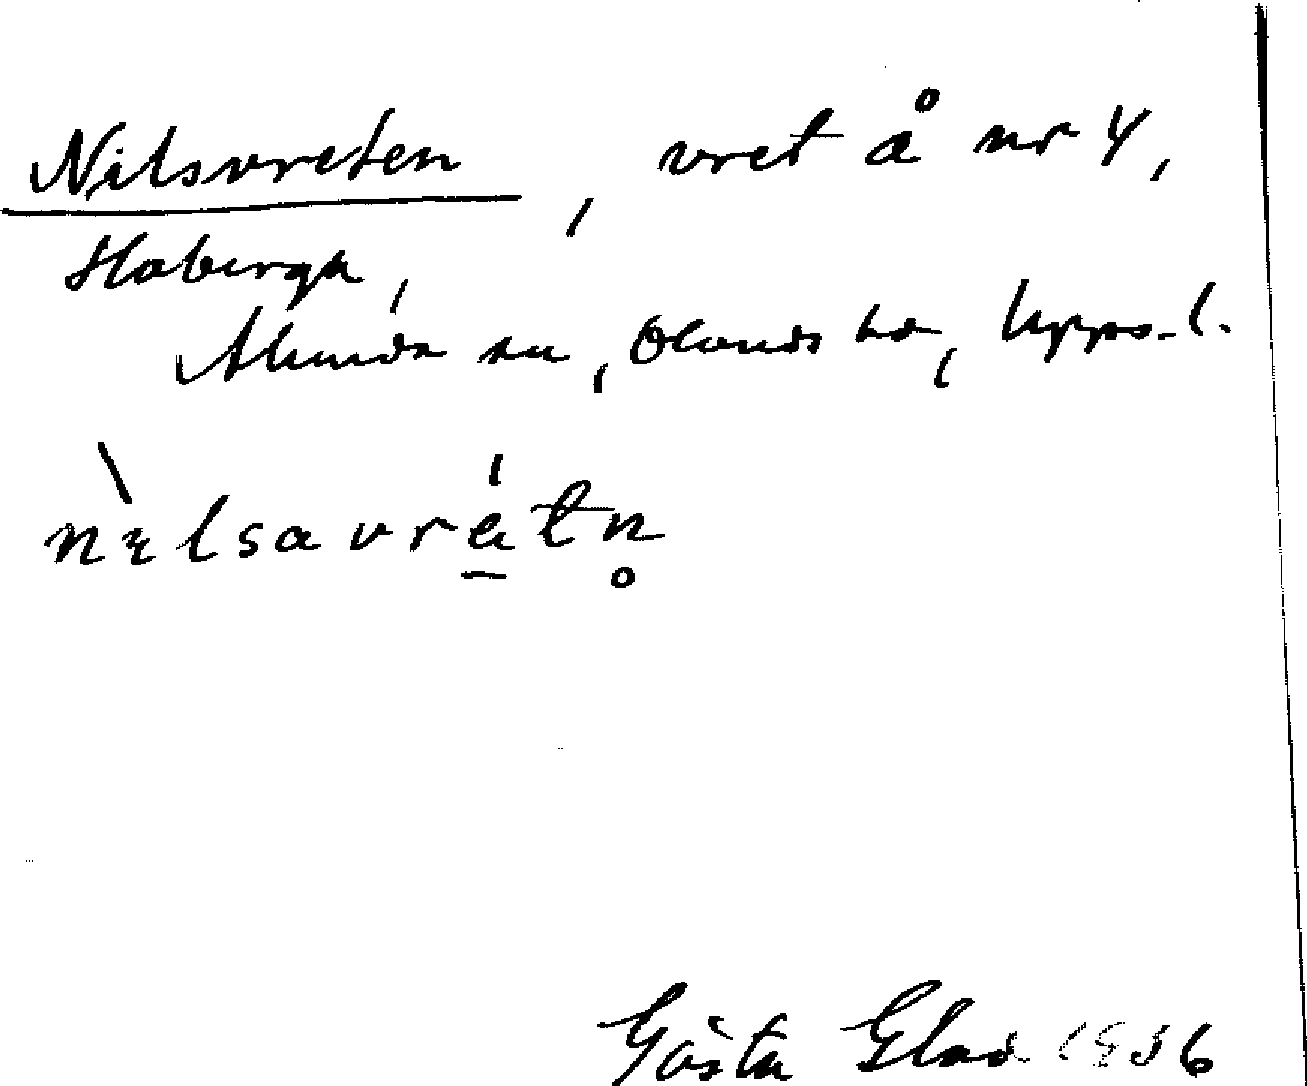 Nilsvreten, vret å nr 4,
Haberga,
Alunda sn, Olands hd, Upps. l.
nìlsavrétn̥
Gösta Elad 1936